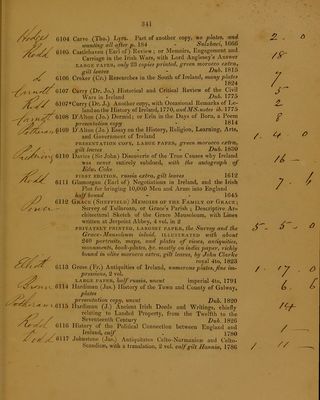 341
Hodges 6104 Carve (Tho.) Lyra. Part of another copy, no plates, and 2 . 0
wanting all after p. 184 - Sulzbaci, 1666
Rodd 6105 Castlehaven (Earl of) Review; or Memoirs, Engagement and 18
Carriage in the Irish Wars, with Lord Anglesey's Answer
LARGE PAPER, only 25 copies printed, green morocco extra,
gilt leaves - Dub. 1815
6106 Croker (Cr.) Researches in the South of Ireland, many plates 7
1824
6107 Curry (Dr. Jo.) Historical and Critical Review of the Civil 5
Wars in Ireland Dub. 1775
Rodd 6107*Curry (Dr. J.) Another copy, with Occasional Remarks of Le- 2
landon the History of Ireland, 1770, and MS. notes ib. 1775
6108 D'Alton (Jo.) Dermid; or Erin in the Days of Boru, a Poem 8
presentation copy 1814
6109 D'Alton (Jo.) Essay on the History, Religion, Learning, Arts, 1 . 4 . 0
and Government of Ireland
PRESENTATION COPY, LARGE PAPER, green morocco extra,
gilt leaves Dub. 1830
6110 Davies (Sir John) Discoverie of the True Causes why Ireland 16 —
was never entirely subdued, with the autograph of
Edw. Coke
FIRST EDITION, russia extra, gilt leaves 1612
Rodd 6111 Glamorgan (Earl of) Negotiations in Ireland, and the Irish 7 . 6
Plot for bringing 10,000 Men and Arms into England
half bound 1645
6112 GRACE (SHEFFIELD) MEMOIRS OF THE FAMILY OF GRACE, 5 - 5 - 0
Survey of Tullaroan, or Grace's Parish; Descriptive Ar-
chitectural Sketch of the Grace Mausoleum, with Lines
written at Jerpoint Abbey, 4 vol. in 2
PRIVATELY PRINTED, LARGEST PAPER, the Survey and the
Grace-Mausoleum inlaid. ILLUSTRATED with about
240 portraits, maps, and plates of views, antiquities,
monuments, book-plates, &c. mostly on india paper, richly
bound in olive morocco extra, gilt leaves, by John Clarke
royal 4to, 1823
Elliott 6113 Grose (Fr.) Antiquities of Ireland, numerous plates, fine im- 1 - 17 . 0
pressions, 2 vol.
LARGE PAPER, half russia, uncut imperial 4to, 1791
6114 Hardiman (Jas.) History of the Town and County of Galway, 6 . 6
plates
presentation copy, uncut Dub. 1820
6115 Hardiman (J.) Ancient Irish Deeds and Writings, chiefly 14
relating to Landed Property, from the Twelfth to the
Seventeenth Century Dub. 1826
Rodd 6116 History of the Political Connection between England and 1 —
Ireland, calf 1780
Rodd 6117 Johnstone (Jas.) Antiquitates Celto-Normanicæ and Celto- 1 - 11 —
Scandicæ, with a translation, 2 vol. calf gilt Hauniæ, 1786